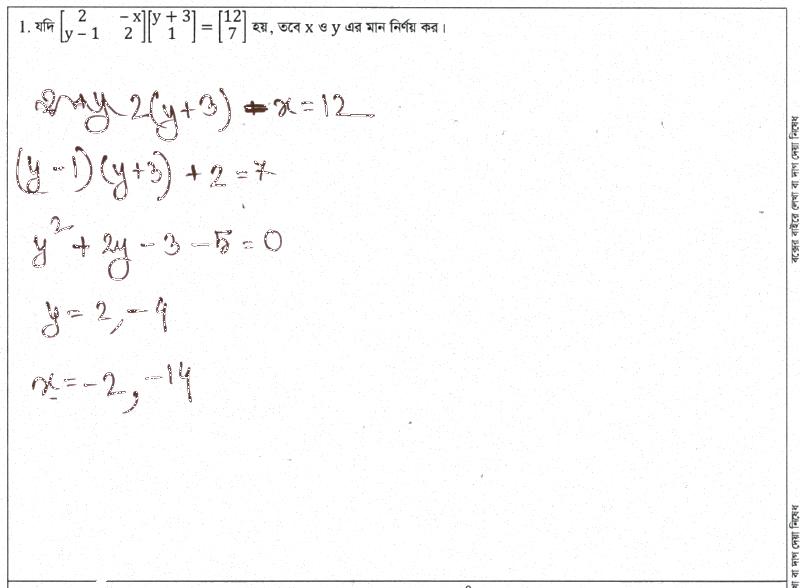 1. যদি [2 −x; y − 1 2][y + 3; 1] = [12; 7] হয়, তবে x ও y এর মান নির্ণয় কর।
2(y+3) - x = 12
(y-1)(y+3) + 2 = 7
y² + 2y - 3 - 5 = 0
y = 2, -4
x = -2, -14
বক্সের বাইরে লেখা বা দাগ দেয়া নিষেধ
বা দাগ দেয়া নিষেধ